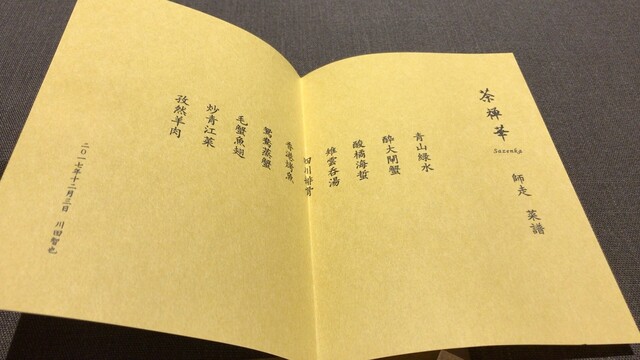 茶禅華
Sazenka
師走 菜譜
青山緑水
酔大閘蟹
酸橘海蜇
雉雲呑湯
四川
香港
鴛鴦蒸蟹
毛蟹魚翅
炒青江菜
孜然羊肉
二〇一七年十二月三日 川田智也